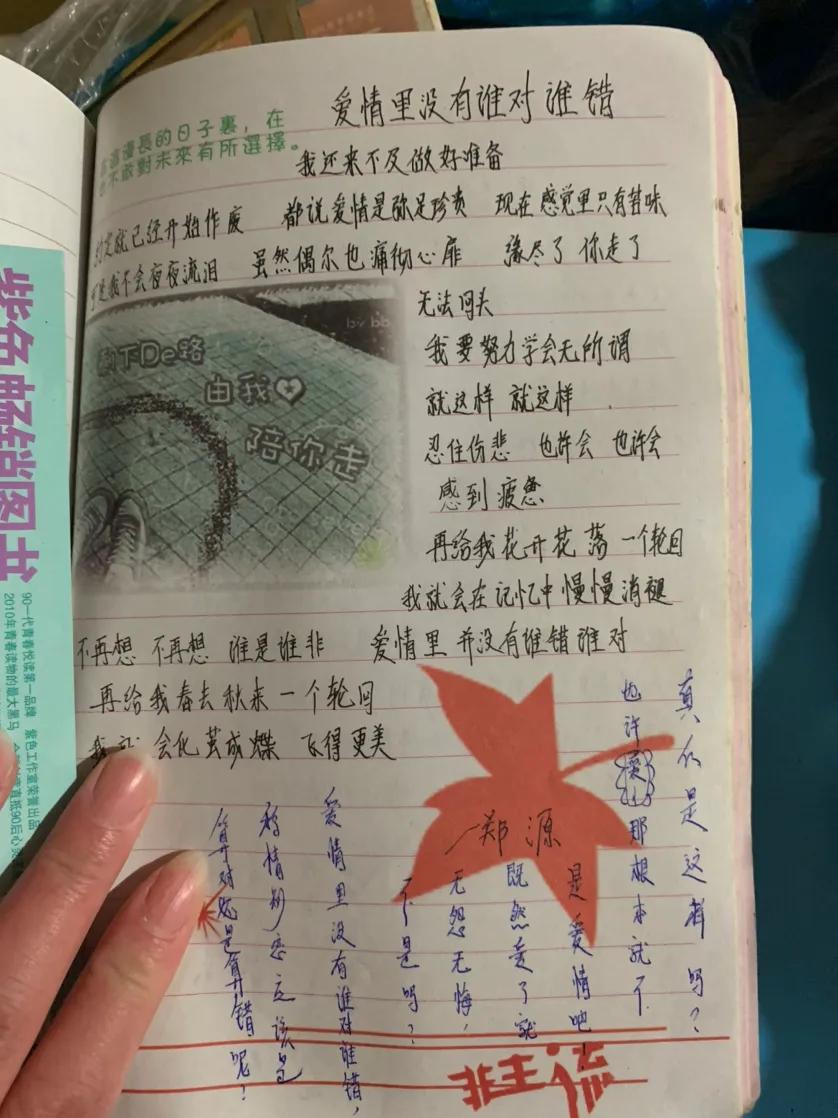 爱情里没有谁对谁错
漫長的日子裏，在
不敢對未來有所選擇。
我还来不及做好准备
就已经开始作废 都说爱情是弥足珍贵 现在感觉里只有苦味
可是我不会夜夜流泪 虽然偶尔也痛彻心扉 缘尽了 你走了
无法回头
我要努力学会无所谓
就这样 就这样
忍住伤悲 也许会 也许会
感到疲惫
再给我花开花落 一个轮回
我就会在记忆中慢慢消褪
剩下De路
由我
陪你走
by bb
不再想 不再想 谁是谁非 爱情里并没有谁错谁对
再给我春去秋来一个轮回
我就会化茧成蝶 飞得更美
郑源
真的是这样吗？
也许爱那根本就不
是爱情吧！
既然爱了就
无怨无悔，
不是吗？
爱情里没有谁对谁错，
算对呢是算错呢？
非主流
紫色畅尚图书
90一代青春悦读第一品牌 紫色工作室荣誉出品
2010年青春读物的最大黑马